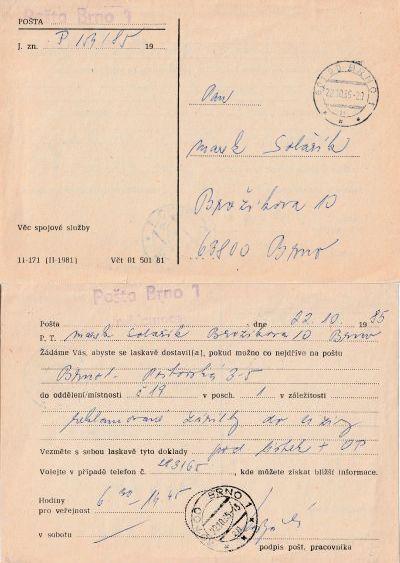 Pošta Brno 1
POŠTA
J. zn. P 159/85 19
Pan
Marek Solařík
Brožíkova 10
63800 Brno
BRNO 1
22.10.85-20
Věc spojové služby
11-171 (II-1981) Včt 01 501 81
Pošta Brno 1
Pošta dne 22. 10 1985
P. T. Marek Solařík Brožíkova 10 Brno
Žádáme Vás, abyste se laskavě dostavil[a], pokud možno co nejdříve na poštu
Brno 1. 3-5
do oddělení/místnosti č 19 v posch. 1 v záležitosti
reklamované zásilky do
Vezměte s sebou laskavě tyto doklady pod lístek + OP
Volejte v případě telefon č. 23165, kde můžete získat bližší informace.
Hodiny
pro veřejnost 6 30 - 14 45
BRNO 1
v sobotu
podpis pošt. pracovníka